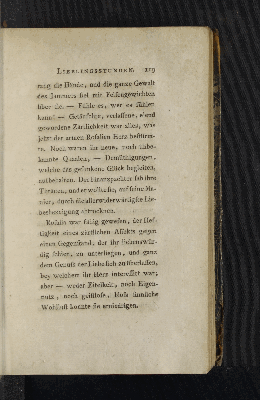 LIEBLINGSSTUNDEN. 219
rang die Hände, und die ganze Gewalt
des Jammers fiel mit Felsengewichten
über sie. — Fühle es, wer es fühlen
kann! — Getäuschte, verlassne, elend
gewordene Zärtlichkeit war alles, was
jetzt der armen Rosalien Herz bestürm-
te. Noch waren ihr neue, noch unbe-
kannte Quaalen, — Demüthigungen,
welche das gesunkene Glück begleiten,
aufbehalten. Der Finanzpachter sah ihre
Thränen, und er wollte sie, auf seine Ma-
nier, durch die allerniederwärtigste Lie-
besbezeigung abtrocknen.
Rosalia war fähig gewesen, der Hef-
tigkeit eines zärtlichen Affekts gegen
einen Gegenstand, der ihr liebenswür-
dig schien, zu unterliegen, und ganz
dem Genuss der Liebe sich zu überlassen,
bey welchem ihr Herz interessirt war;
aber — weder Eitelkeit, noch Eigen-
nutz, noch geistlose, bloss sinnliche
Wohllust konnte sie erniedrigen.